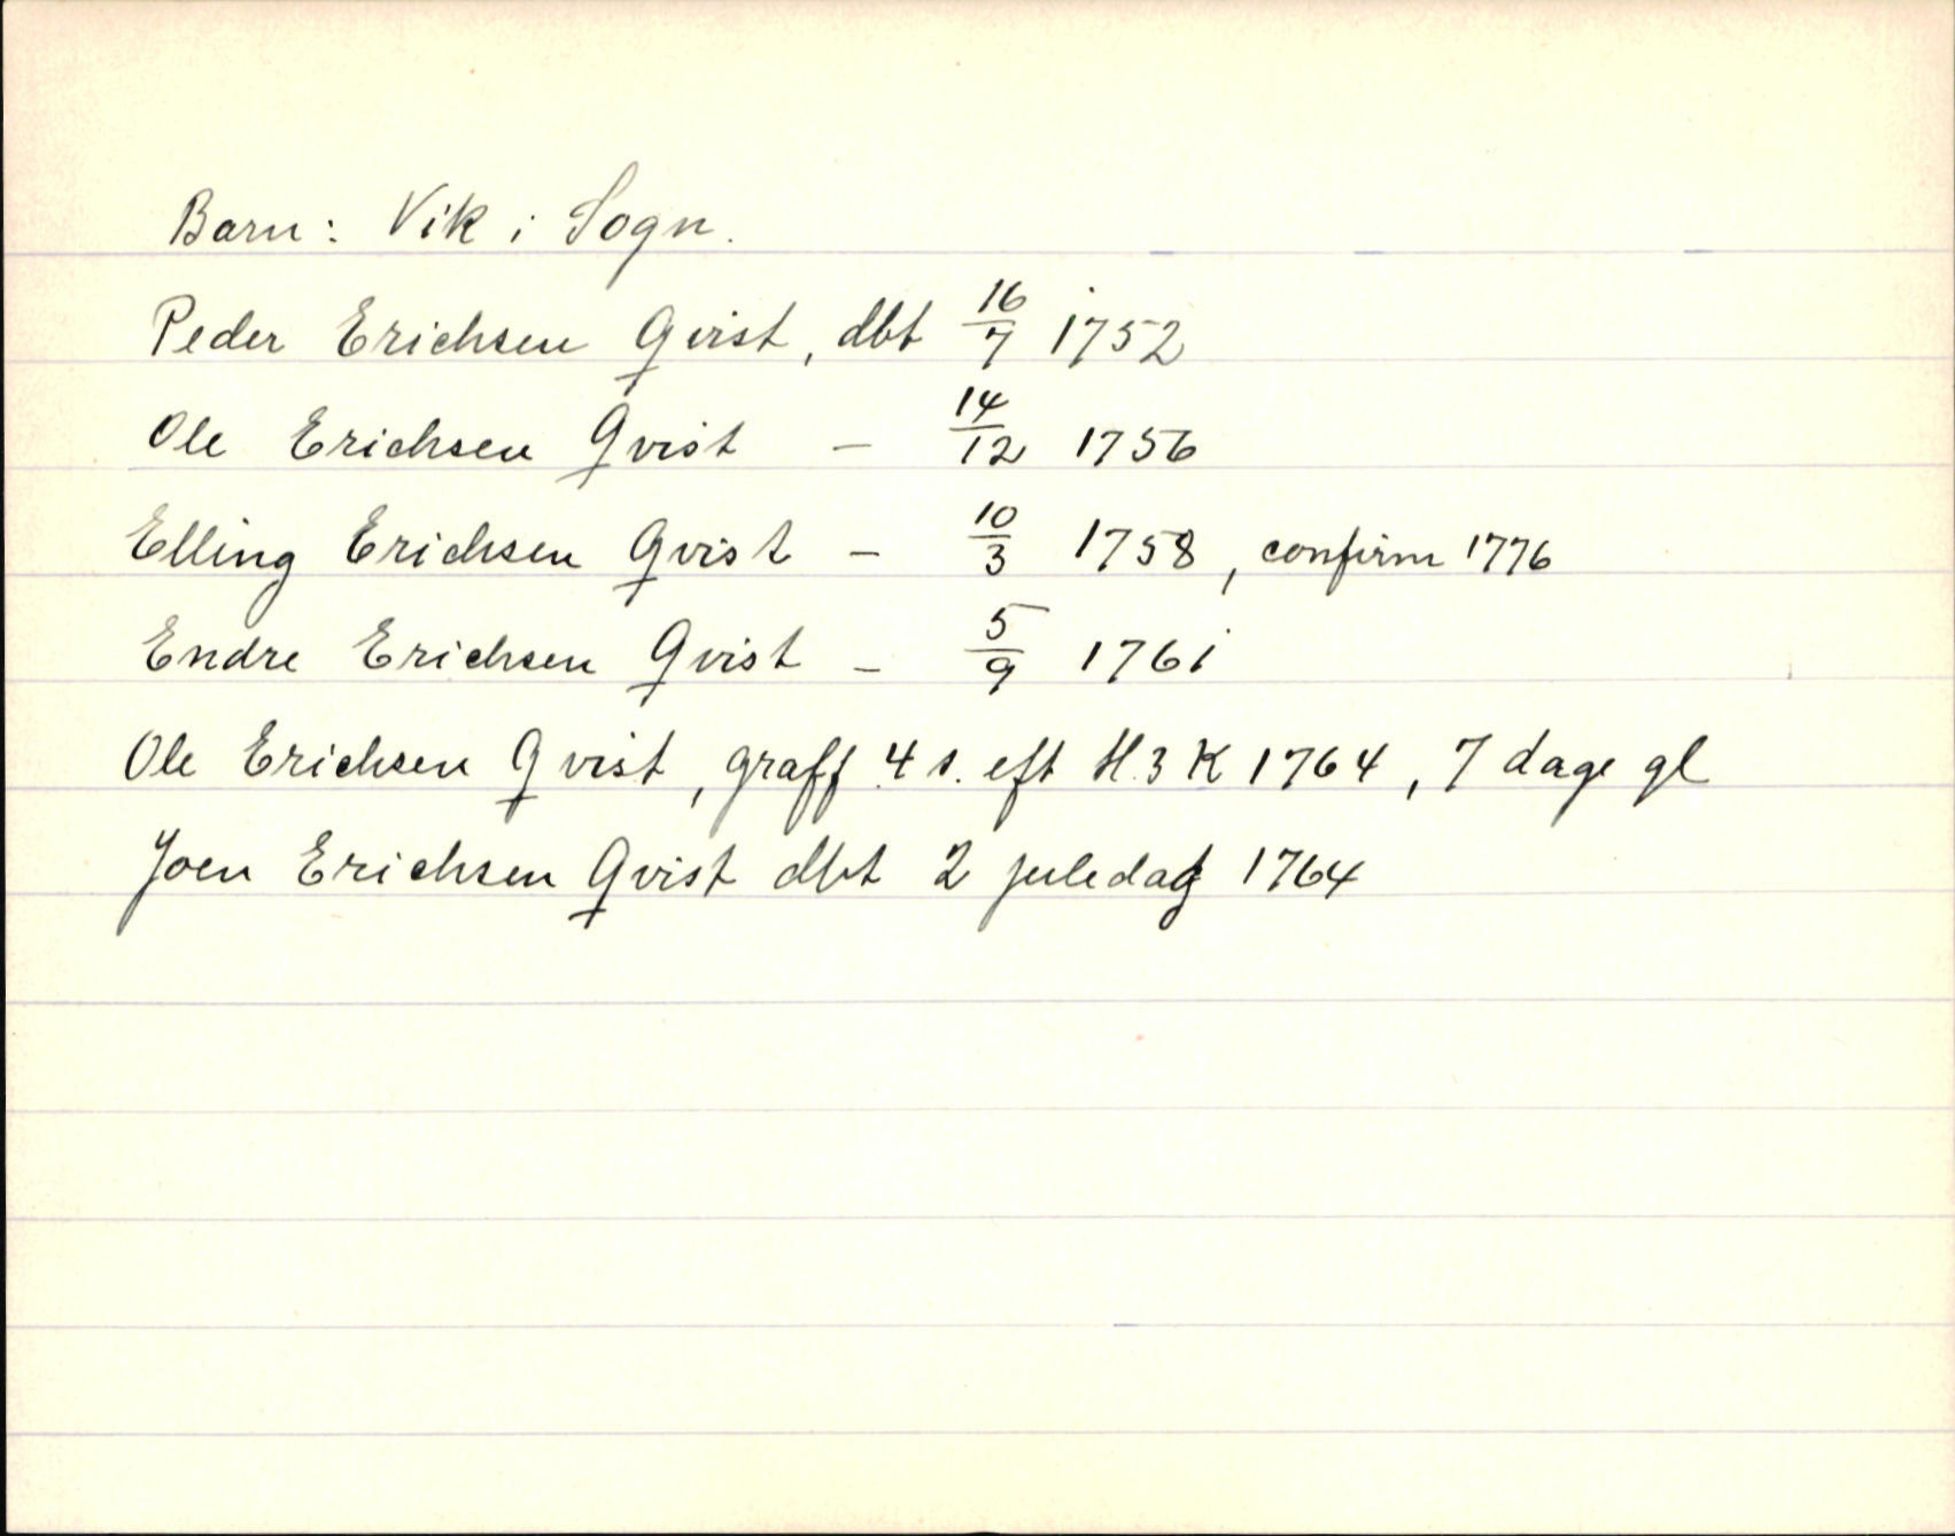 Barn: Vik i Sogn.
Peder Erichsen Qvist, dbt 16/7 1752
Ole Erichsen Qvist – 14/12 1756
Elling Erichsen Qvist – 10/3 1758, confirm 1776
Endre Erichsen Qvist – 5/9 1761
Ole Erichsen Qvist, graff 4 s. eft H.3 K 1764, 7 dage gl
Joen Erichsen Qvist dbt 2 juledag 1764